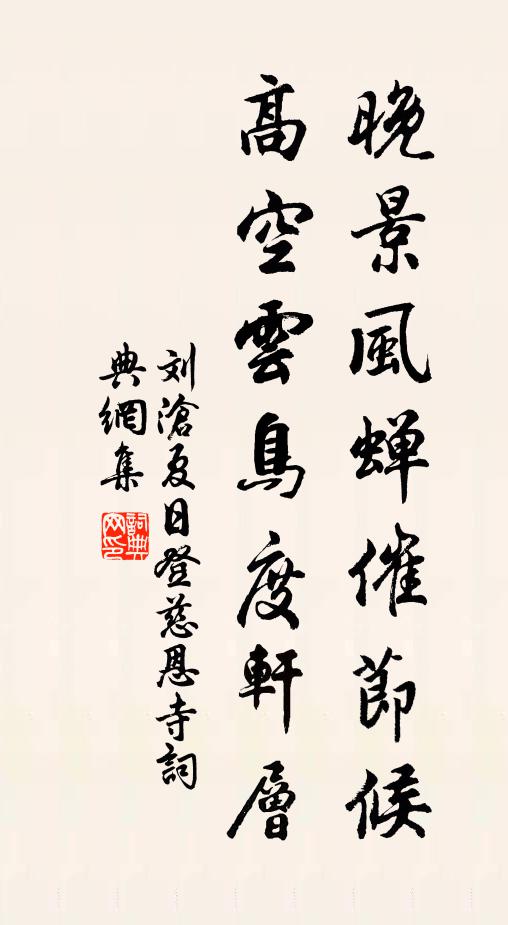 晚景風蝉催節候
高空雲鳥度軒層
刘滄夏日登慈恩寺詞
典網集
詞典网印